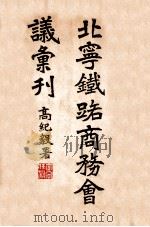 北寧鐵路商務會
議彙刊
高紀毅署
www.mtoou.info